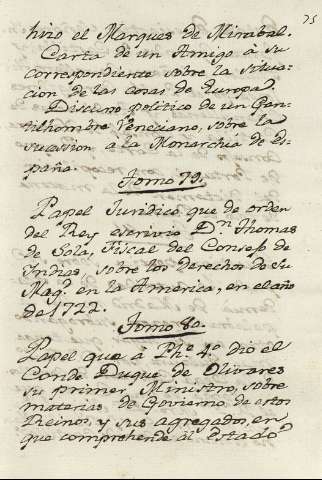 75
hizo el Marques de Mirabal.
Carta de un Amigo à su
correspondiente sobre la situa-
cion de las cosas de Europa.
Discurso politico de un Gen-
tilhombre Veneciano, sobre la
sucession a la Monarchia de Es-
paña.
Tomo 79.
Papel Juridico que de orden
del Rey escrivio Dn Thomas
de Sola, Fiscal del Consejo de
Indias, sobre los derechos de Su
Magd. en la America, en el año
de 1722.
Tomo 80.
Papel que à Phe. 4º dio el
Conde Duque de Olivares
su primer Ministro, sobre
materias de Govierno de estos
Reinos, y sus agregados, en
que comprehende al Estado